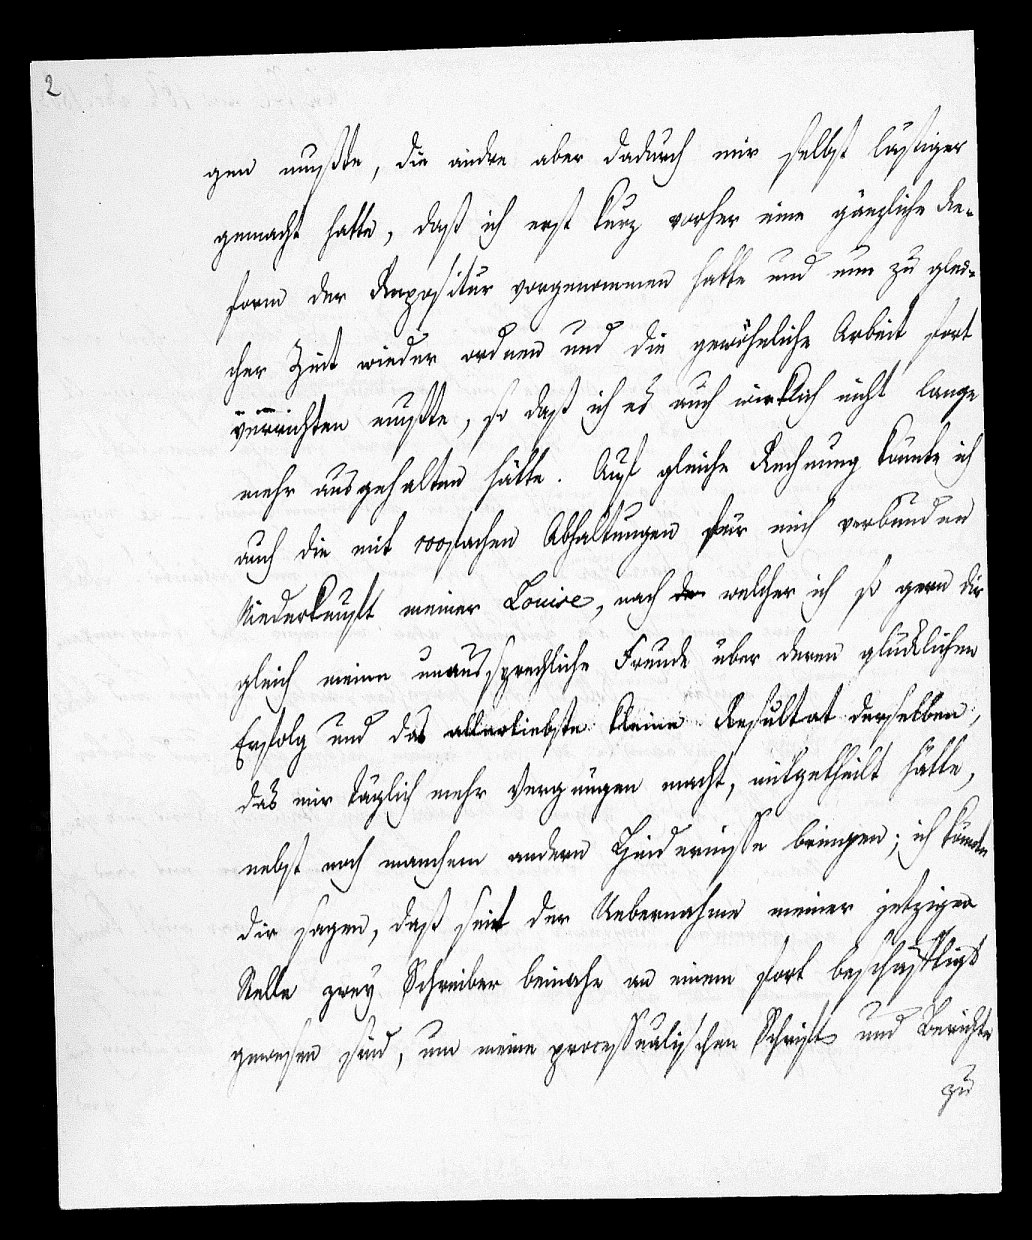 2
gen mußte, die andre aber dadurch mir selbst lästiger
gemacht hatte, daß ich erst kurz vorher eine gänzliche Re-
form der Repositur vorgenommen hatte und nun zu glei-
cher Zeit wieder ordnen und die gewöhnliche Arbeit fort
verrichten mußte, so daß ich es auch wirklich nicht lange
mehr ausgehalten hätte. Auf gleiche Rechnung könnte ich
auch die mit 1000fachen Abhaltungen für mich verbundene
Niederkunft meiner Louise, nach welcher ich so gern dir
gleich meine unaussprechliche Freude über deren glücklichen
Erfolg und das allerliebste kleine Resultat derselben,
das mir täglich mehr Vergnügen macht, mitgetheilt hätte,
nebst noch manchem andern Hindernisse bringen; ich könnte
dir sagen, daß seit der Uebernahme meiner jetzigen
Stelle zwey Schreiber beinahe an einem fort beschäftigt
gewesen sind, um meine processualischen Schrift und Berichte
zu